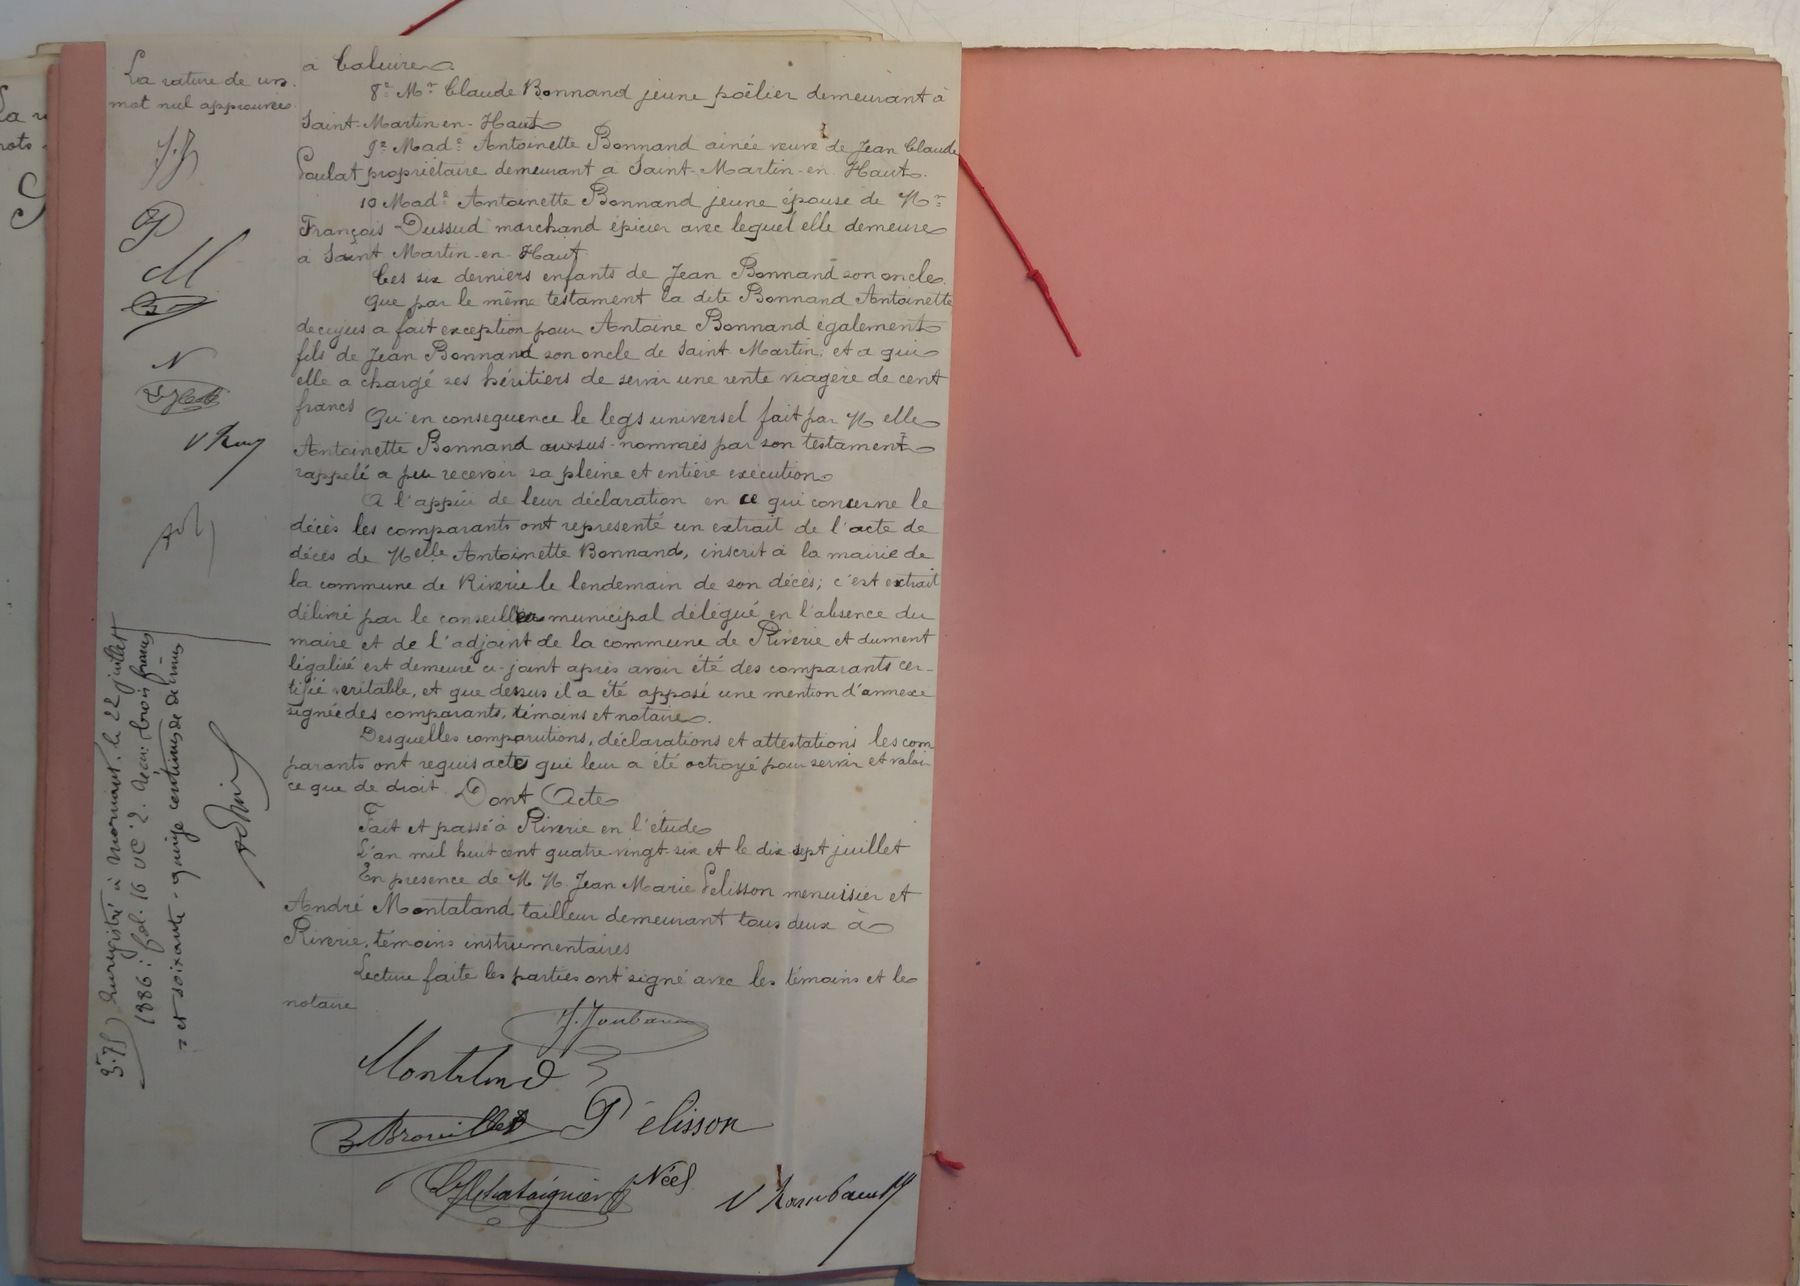 La rature de un
mot nul approuvée
J.J
P
M
N
à Caluire
8º Mr Claude Bonnand jeune poêlier demeurant à
Saint-Martin-en-Haut
9º Made Antoinette Bonnand ainée veuve de Jean Claude
Goulat propriétaire demeurant à Saint-Martin-en-Haut.
10 Made Antoinette Bonnand jeune épouse de Mr
François Dussud marchand épicier avec lequel elle demeure
a Saint Martin-en-Haut
Ces six derniers enfants de Jean Bonnand son oncle.
Que par le même testament la dite Bonnand Antoinette
decujus a fait exception pour Antoine Bonnand également
fils de Jean Bonnand son oncle de Saint Martin, et a qui
elle a chargé ses héritiers de servir une rente viagère de cent
francs
Qu'en conséquence le legs universel fait par Melle
Antoinette Bonnand aux sus-nommés par son testament
rappelé a pu recevoir sa pleine et entière exécution
A l'appui de leur déclaration en ce qui concerne le
décès les comparants ont représenté un extrait de l'acte de
décès de Melle Antoinette Bonnand, inscrit à la mairie de
la commune de Riverie le lendemain de son décès; c'est extrait
délivré par le conseiller municipal délégué en l'absence du
maire et de l'adjoint de la commune de Riverie et dument
légalisé est demeuré ci-joint après avoir été des comparants cer-
tifié veritable, et que dessus il a été apposé une mention d'annexe
signée des comparants, témoins et notaire.
Desquelles comparutions, déclarations et attestations les com
parants ont requis acte qui leur a été octroyé pour servir et valoir
ce que de droit. Dont Acte
Fait et passé à Riverie en l'étude
L'an mil huit cent quatre-vingt-six et le dix sept juillet
En présence de M. M. Jean Marie Pelisson menuisier et
André Montaland tailleur demeurant tous deux à
Riverie, témoins instrumentaires
Lecture faite les parties ont signé avec les témoins et le
notaire
J. Joubana
Montaland
Brouillet
Pélisson
Chataignier
Néel
3.75) Enregistré à Mornant, le 22 juillet
1886; fol. 16 Vº C 2. Reçu: trois francs
et soixante-quinze centimes décimes